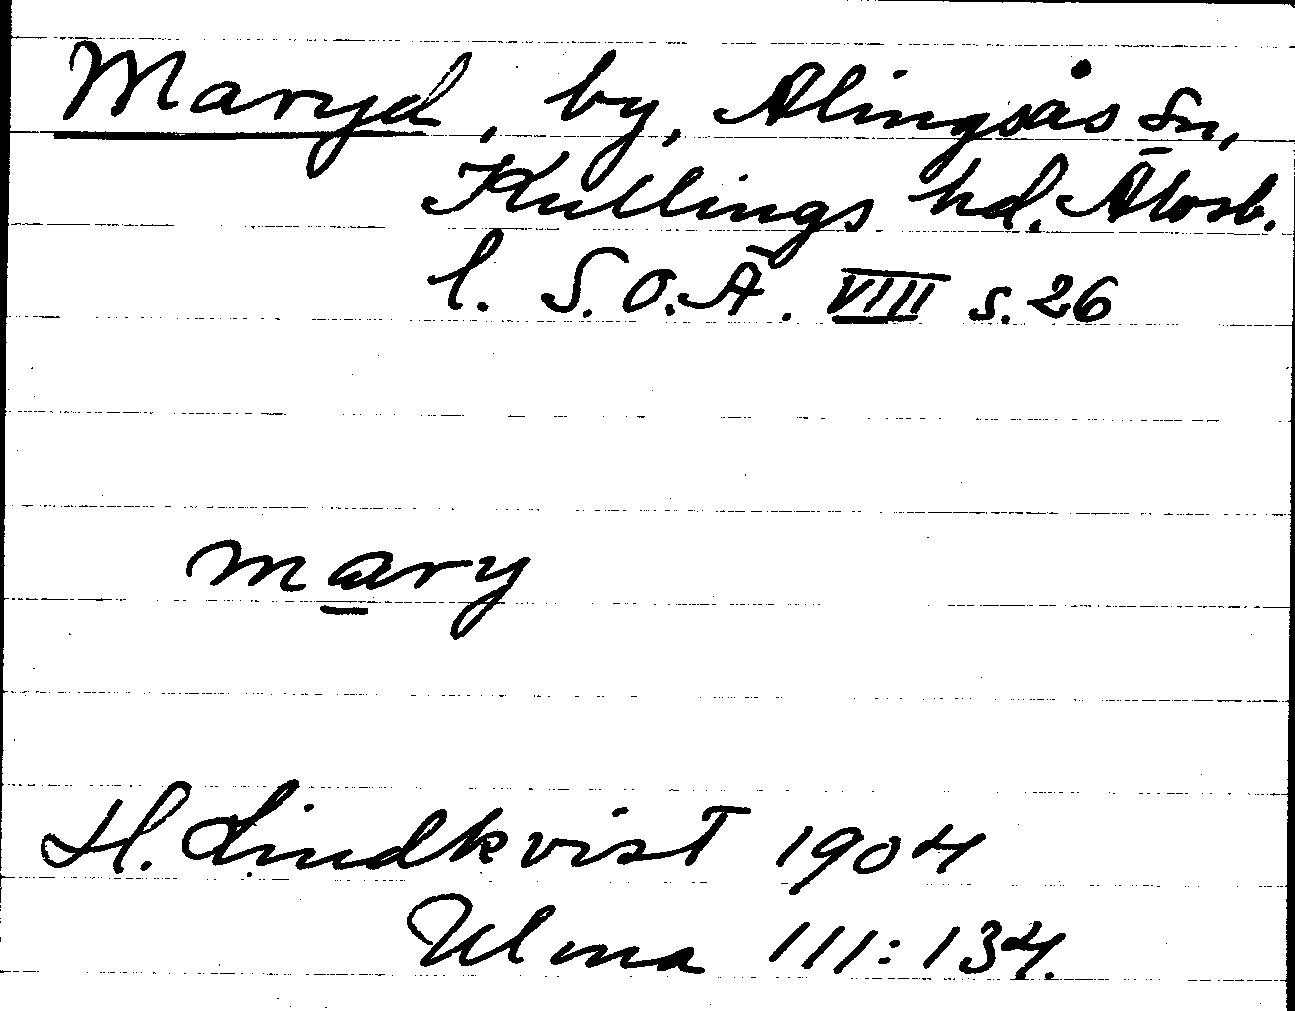 Maryd, by, Alingsås sn,
Kullings hd. Älvsb.
l. S.O.Ä. VIII s. 26
mary
H. Lindkvist 1904
Ulma 111:134.